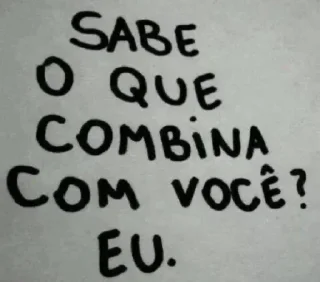 SABE
O QUE
COMBINA
COM VOCÊ?
EU.